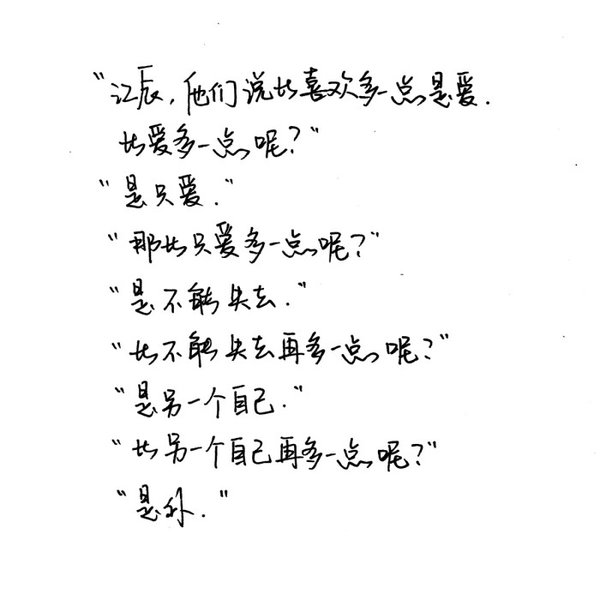 “江辰，他们说比喜欢多一点是爱.
比爱多一点呢？”
“是只爱.”
“那比只爱多一点呢？”
“是不能失去.”
“比不能失去再多一点呢？”
“是另一个自己.”
“比另一个自己再多一点呢？”
“是你.”